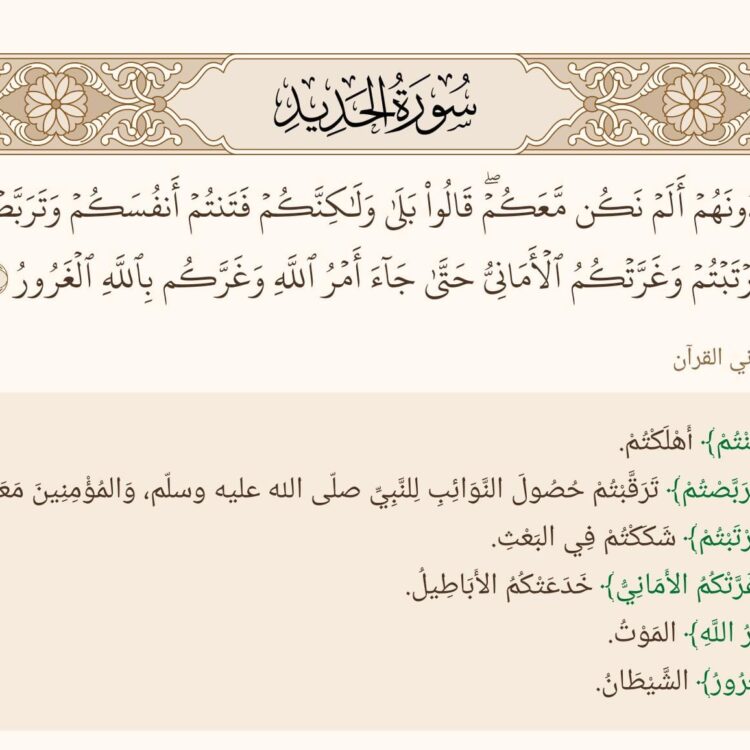 سُورَةُ الحَدِيدِ
أَلَمۡ نَكُن مَّعَكُمۡۖ قَالُواْ بَلَىٰ وَلَٰكِنَّكُمۡ فَتَنتُمۡ أَنفُسَكُمۡ
وَغَرَّتۡكُمُ ٱلۡأَمَانِيُّ حَتَّىٰ جَآءَ أَمۡرُ ٱللَّهِ وَغَرَّكُم بِٱللَّهِ ٱلۡغَرُورُ
القرآن
أَهْلَكْتُمْ.
تَرَقَّبْتُمْ حُصُولَ النَّوَائِبِ لِلنَّبِيِّ صلّى الله عليه وسلّم، وَالمُؤْمِنِينَ
شَكَكْتُمْ فِي البَعْثِ.
الأَمَانِيُّ}: خَدَعَتْكُمُ الأَبَاطِيلُ.
اللَّهِ}: المَوْتُ.
الشَّيْطَانُ.